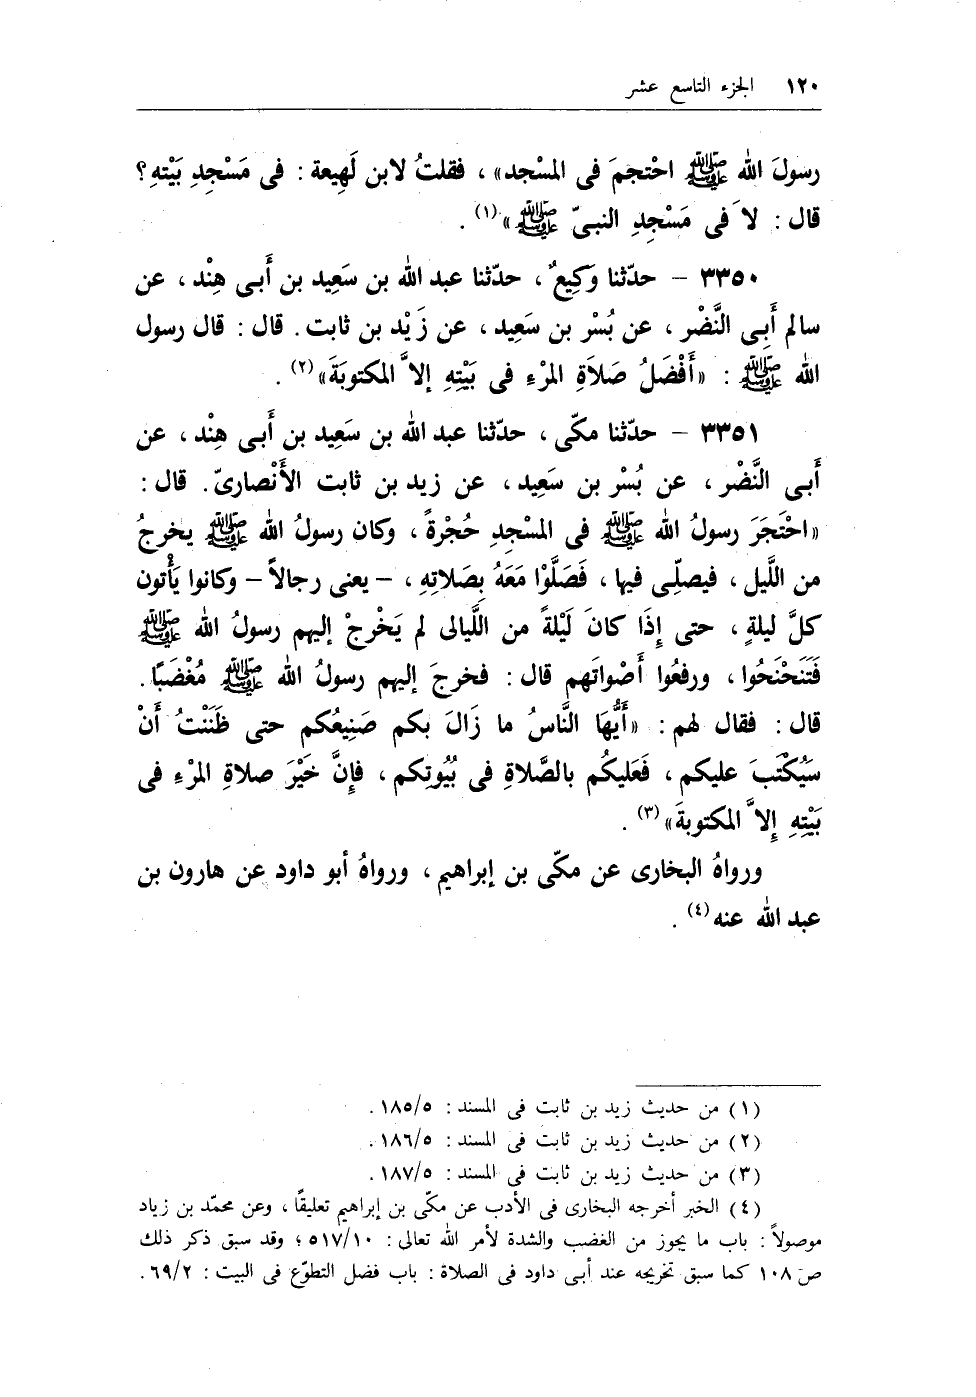 ١٢٠ الجزء التاسع عشر
رسولَ الله ﷺ احْتجمَ فى المسْجد» ، فقلتُ لابن لَهِيعة : فى مَسْجِدِ بَيْتهِ؟
قال : لاَ فى مَسْجِدِ النبىّ ﷺ»(١) .
٣٣٥٠ – حدّثنا وَكِيعٌ ، حدّثنا عبد الله بن سَعِيد بن أَبى هِنْد ، عن
سالم أَبِى النَّضْر ، عن بُسْر بن سَعِيد ، عن زَيْد بن ثابت . قال : قال رسول
الله ﷺ : «أَفْضَلُ صَلاَةِ المرْءِ فى بَيْتِهِ إلاَّ المكتوبَةَ»(٢) .
٣٣٥١ – حدّثنا مكّى ، حدّثنا عبد الله بن سَعِيد بن أَبى هِنْد ، عن
أَبى النَّضْر ، عن بُسْر بن سَعِيد ، عن زيد بن ثابت الأَنْصارىّ . قال :
«احْتَجَرَ رسولُ الله ﷺ فى المسْجِدِ حُجْرةً ، وكان رسولُ الله ﷺ يخرجُ
من اللَّيل ، فيصلّى فيها ، فَصَلَّوْا مَعَهُ بِصَلاتِهِ ، – يعنى رجالاً – وكانوا يَأْتون
كلَّ ليلةٍ ، حتى إِذَا كانَ لَيْلةً من اللَّيالى لم يَخْرجْ إليهم رسولُ الله ﷺ
فَتَنَحْنَحُوا ، ورفعُوا أَصْواتَهم قال : فخرجَ إليهم رسولُ الله ﷺ مُغْضَبًا .
قال : فقال لهم : «أَيُّهَا النَّاسُ ما زَالَ بكم صَنِيعُكم حتى ظَنَنْتُ أَنْ
سَيُكْتَبَ عليكم ، فَعَليكُم بالصَّلاةِ فى بُيُوتِكم ، فإِنَّ خَيْرَ صلاةِ المرْءِ فى
بَيْتِهِ إِلاَّ المكتوبةَ»(٣) .
ورواهُ البخارى عن مكّى بن إبراهيم ، ورواهُ أبو داود عن هارون بن
عبد الله عنه(٤) .
(١) من حديث زيد بن ثابت فى المسند : ١٨٥/٥ .
(٢) من حديث زيد بن ثابت فى المسند : ١٨٦/٥ .
(٣) من حديث زيد بن ثابت فى المسند : ١٨٧/٥ .
(٤) الخبر أخرجه البخارى فى الأدب عن مكّى بن إبراهيم تعليقًا ، وعن محمّد بن زياد
موصولاً : باب ما يجوز من الغضب والشدة لأمر الله تعالى : ٥١٧/١٠ ؛ وقد سبق ذكر ذلك
ص ١٠٨ كما سبق تخريجه عند أبى داود فى الصلاة : باب فضل التطوّع فى البيت : ٦٩/٢ .